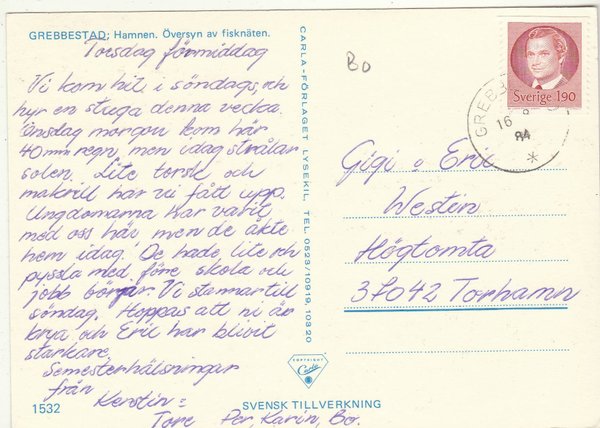 GREBBESTAD; Hamnen. Översyn av fisknäten.
Torsdag förmiddag
Vi kom hit i söndags, och
hyr en stuga denna vecka.
Onsdag morgon kom här
40mm regn, men idag strålar
solen. Lite torsk och
makrill har vi fått upp.
Ungdomarna har varit
med oss här men de åkte
hem idag. De hade lite och
pyssla med före skola och
jobb börjar. Vi stannar till
söndag. Hoppas att ni är
krya och Eric har blivit
starkare.
Semesterhälsningar
från
Kerstin =
Tore Per, Karin, Bo.
1532
SVENSK TILLVERKNING
CARLA-FÖRLAGET LYSEKIL, TEL. 0523/10919, 10320
COPYRIGHT
Carla
Bo
Sverige 190
GREBB
16 8
84
Gigi o Eric
Westin
Högtomta
37042 Torhamn